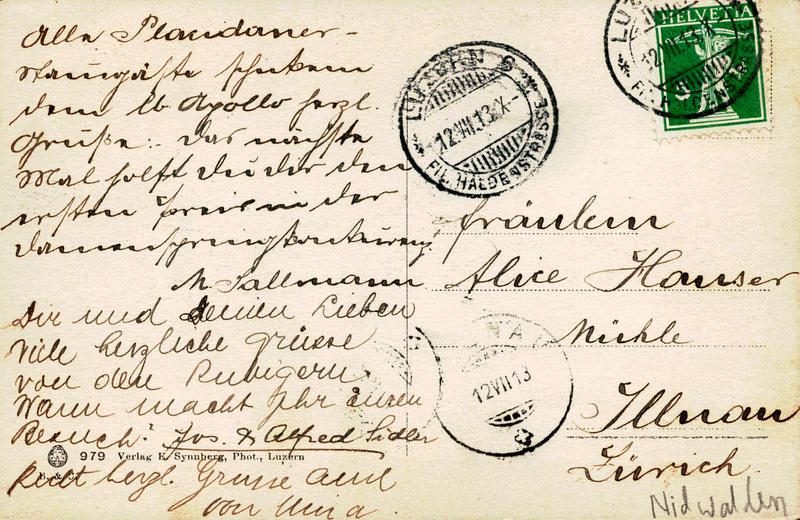 Alle
schicken
dem lb Apollo herzl.
Grüße. Das nächste
Mal holst du dir den
ersten Preis in der
Damenspringkonkurrenz.
M Sallmann
Dir und deinen Lieben
viele herzliche Grüsse
von den
Wann macht Ihr euren
Besuch? Jos. & Alfred
herzl. Grüsse auch
von Mina.
979 Verlag E. Synnberg, Phot., Luzern
LUZERN 6
12.VII.13.X-
FIL. HALDENSTRASSE
HELVETIA
LUZ
12.VII.13.X
FIL. HALDENSTR
Fräulein
Alice Hauser
Mühle
Illnau
Zürich.
NAU
12.VII.13
Nidwalden